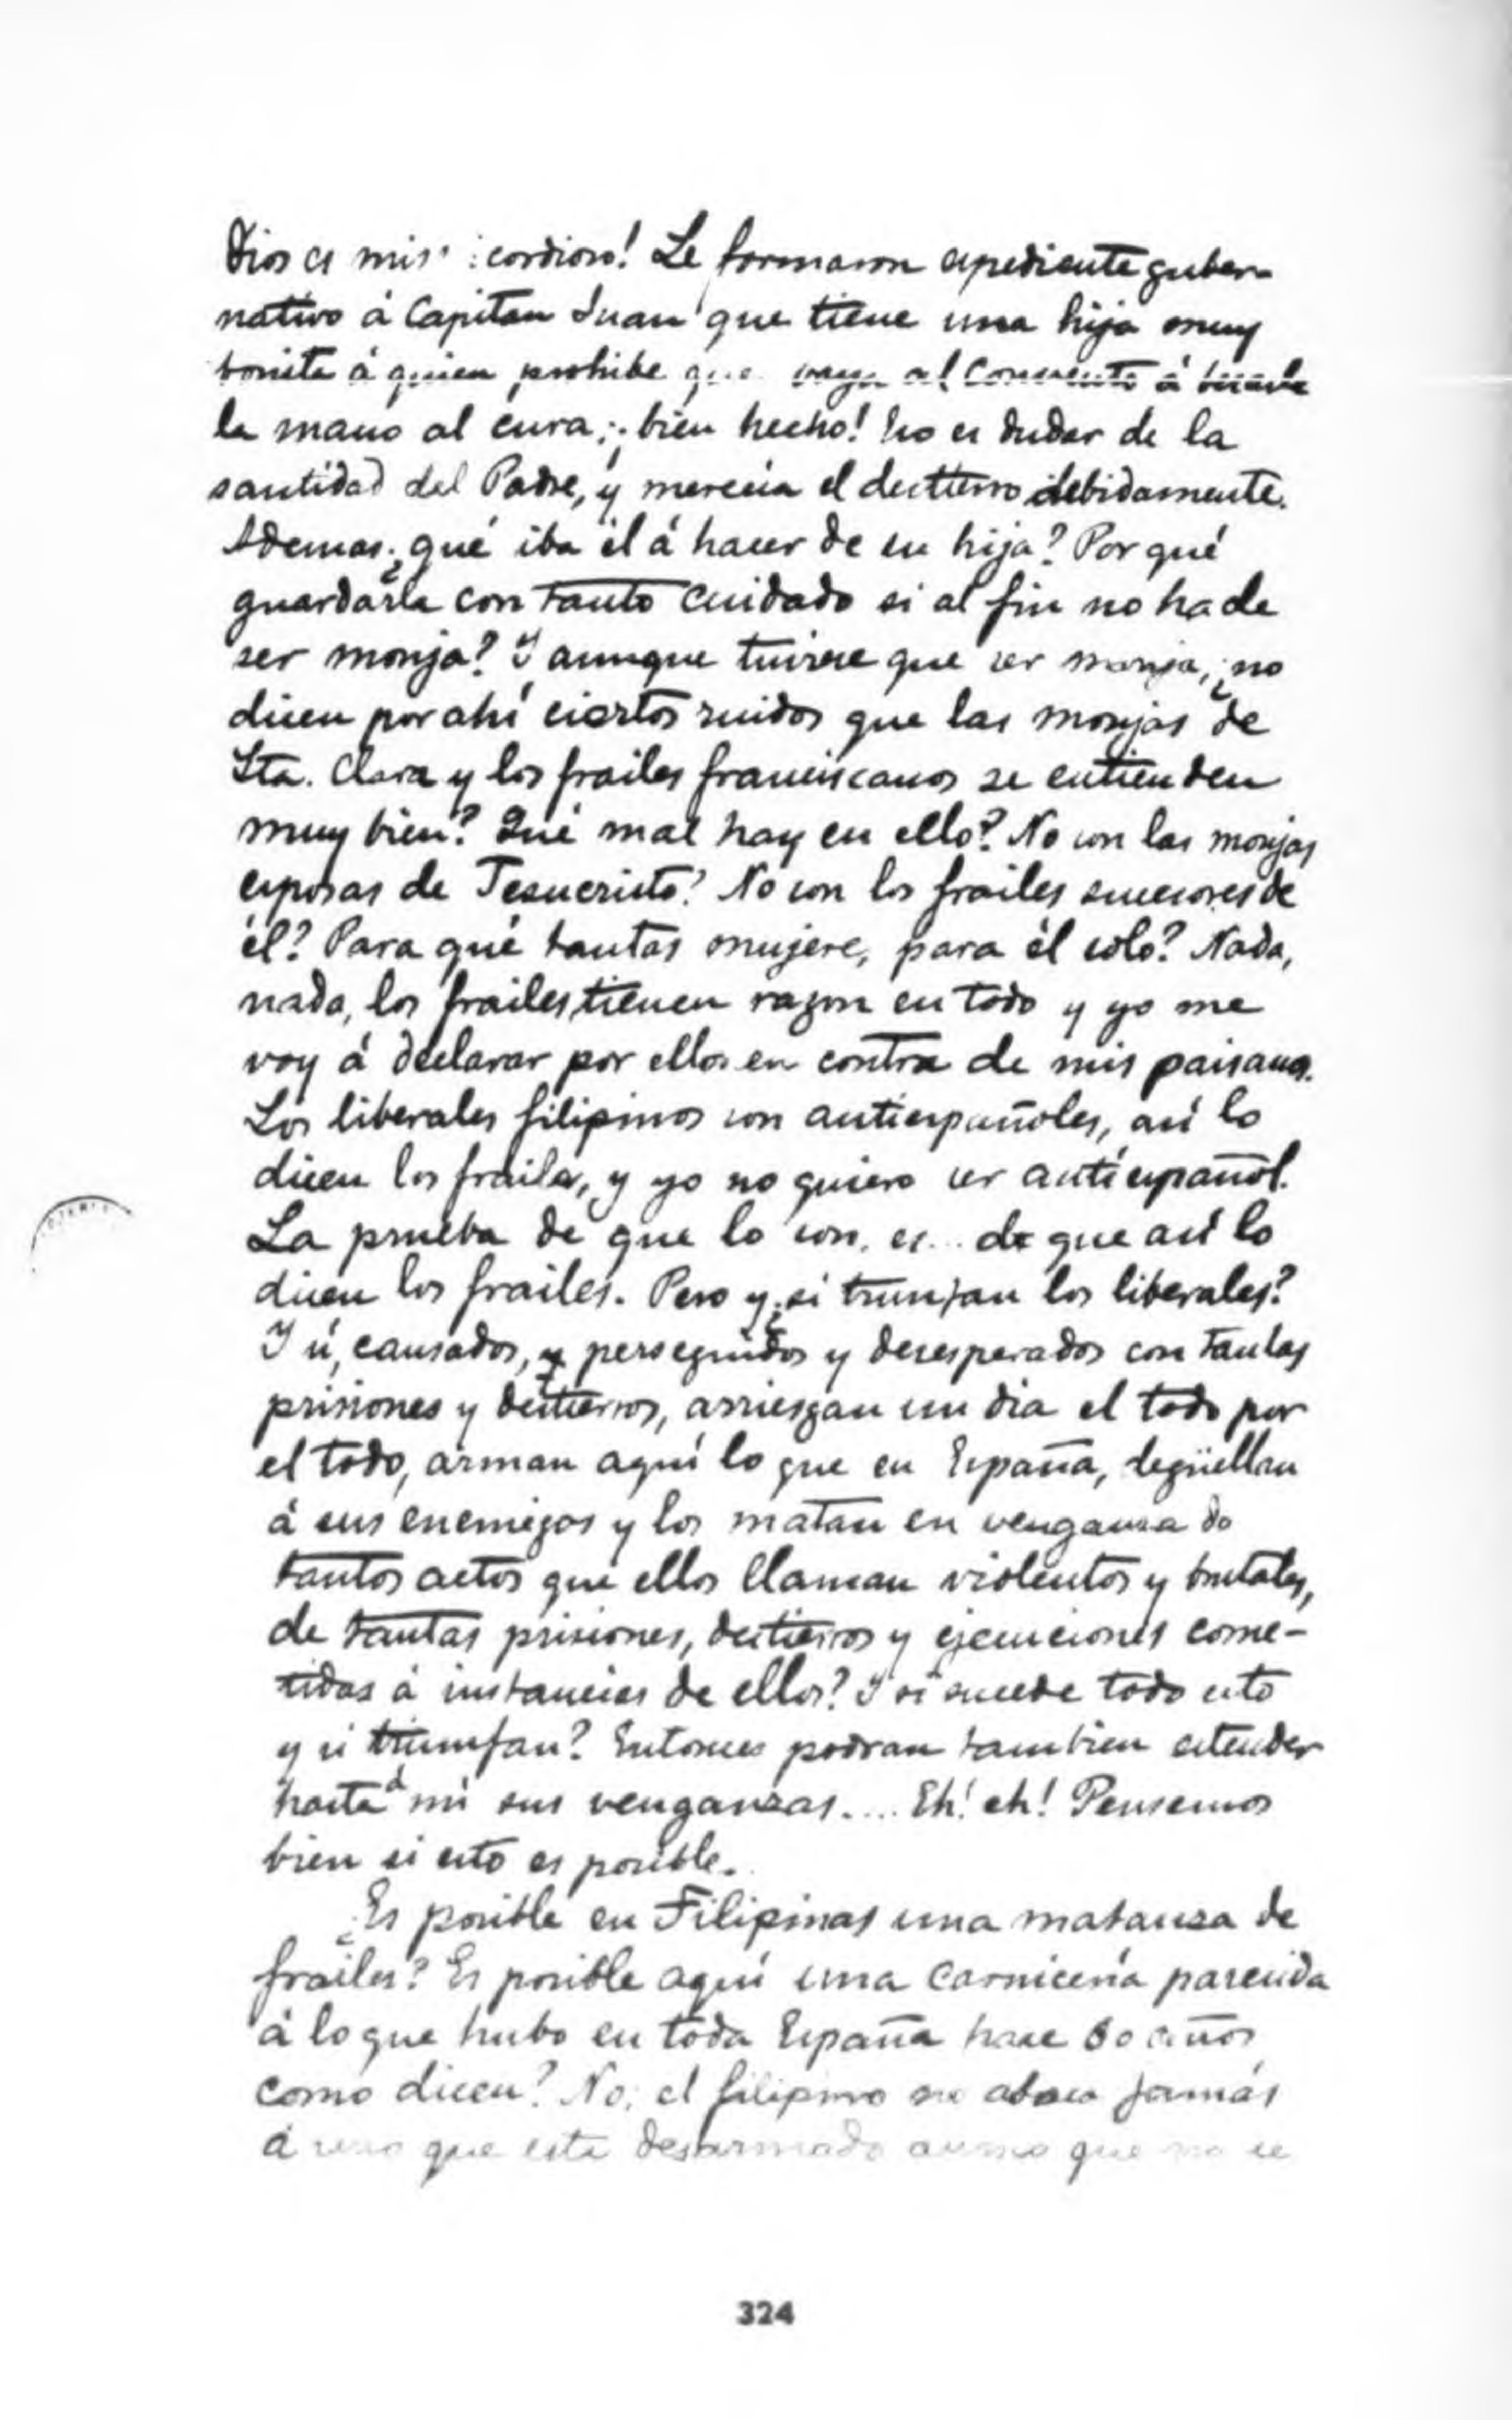 Dios es misericordioso! Le formaron espediente guber-
nativo á Capitan Juan que tiene una hija muy
bonita á quien prohibe que vaya al Convento á besarle
la mano al cura; ¡bien hecho! Eso es dudar de la
santidad del Padre, y merecia el destierro debidamente.
Ademas ¿qué iba él á hacer de su hija? Por qué
guardarla con tanto cuidado si al fin no ha de
ser monja? Y aunque tuviese que ser monja, ¿no
dicen por ahí ciertos ruidos que las monjas de
Sta. Clara y los frailes franciscanos se entienden
muy bien? Qué mal hay en ello? No son las monjas
esposas de Jesucristo? No son los frailes sucesores de
él? Para qué tantas mujeres, para él solo? Nada,
nada, los frailes tienen razon en todo y yo me
voy á declarar por ellos en contra de mis paisanos.
Los liberales filipinos son antiespañoles, así lo
dicen los frailes, y yo no quiero ser antiespañol.
La prueba de que lo son, es... de que así lo
dicen los frailes. Pero y ¿si triunfan los liberales?
Y si, cansados, y perseguidos y desesperados con tantas
prisiones y destierros, arriesgan un dia el todo por
el todo, arman aquí lo que en España, degüellan
á sus enemigos y los matan en venganza de
tantos actos que ellos llaman violentos y brutales,
de tantas prisiones, destierros y ejecuciones come-
tidas á instancias de ellos? Y si sucede todo esto
y si triumfan? Entonces podran tambien estender
hasta á mí sus venganzas.... Eh! eh! Pensemos
bien si esto es posible.
¿Es posible en Filipinas una matanza de
frailes? Es posible aquí una carnicería parecida
á lo que hubo en toda España hace 50 años
como dicen? No; el filipino no ataca jamás
á uno que esta desarmado a uno que no se
324